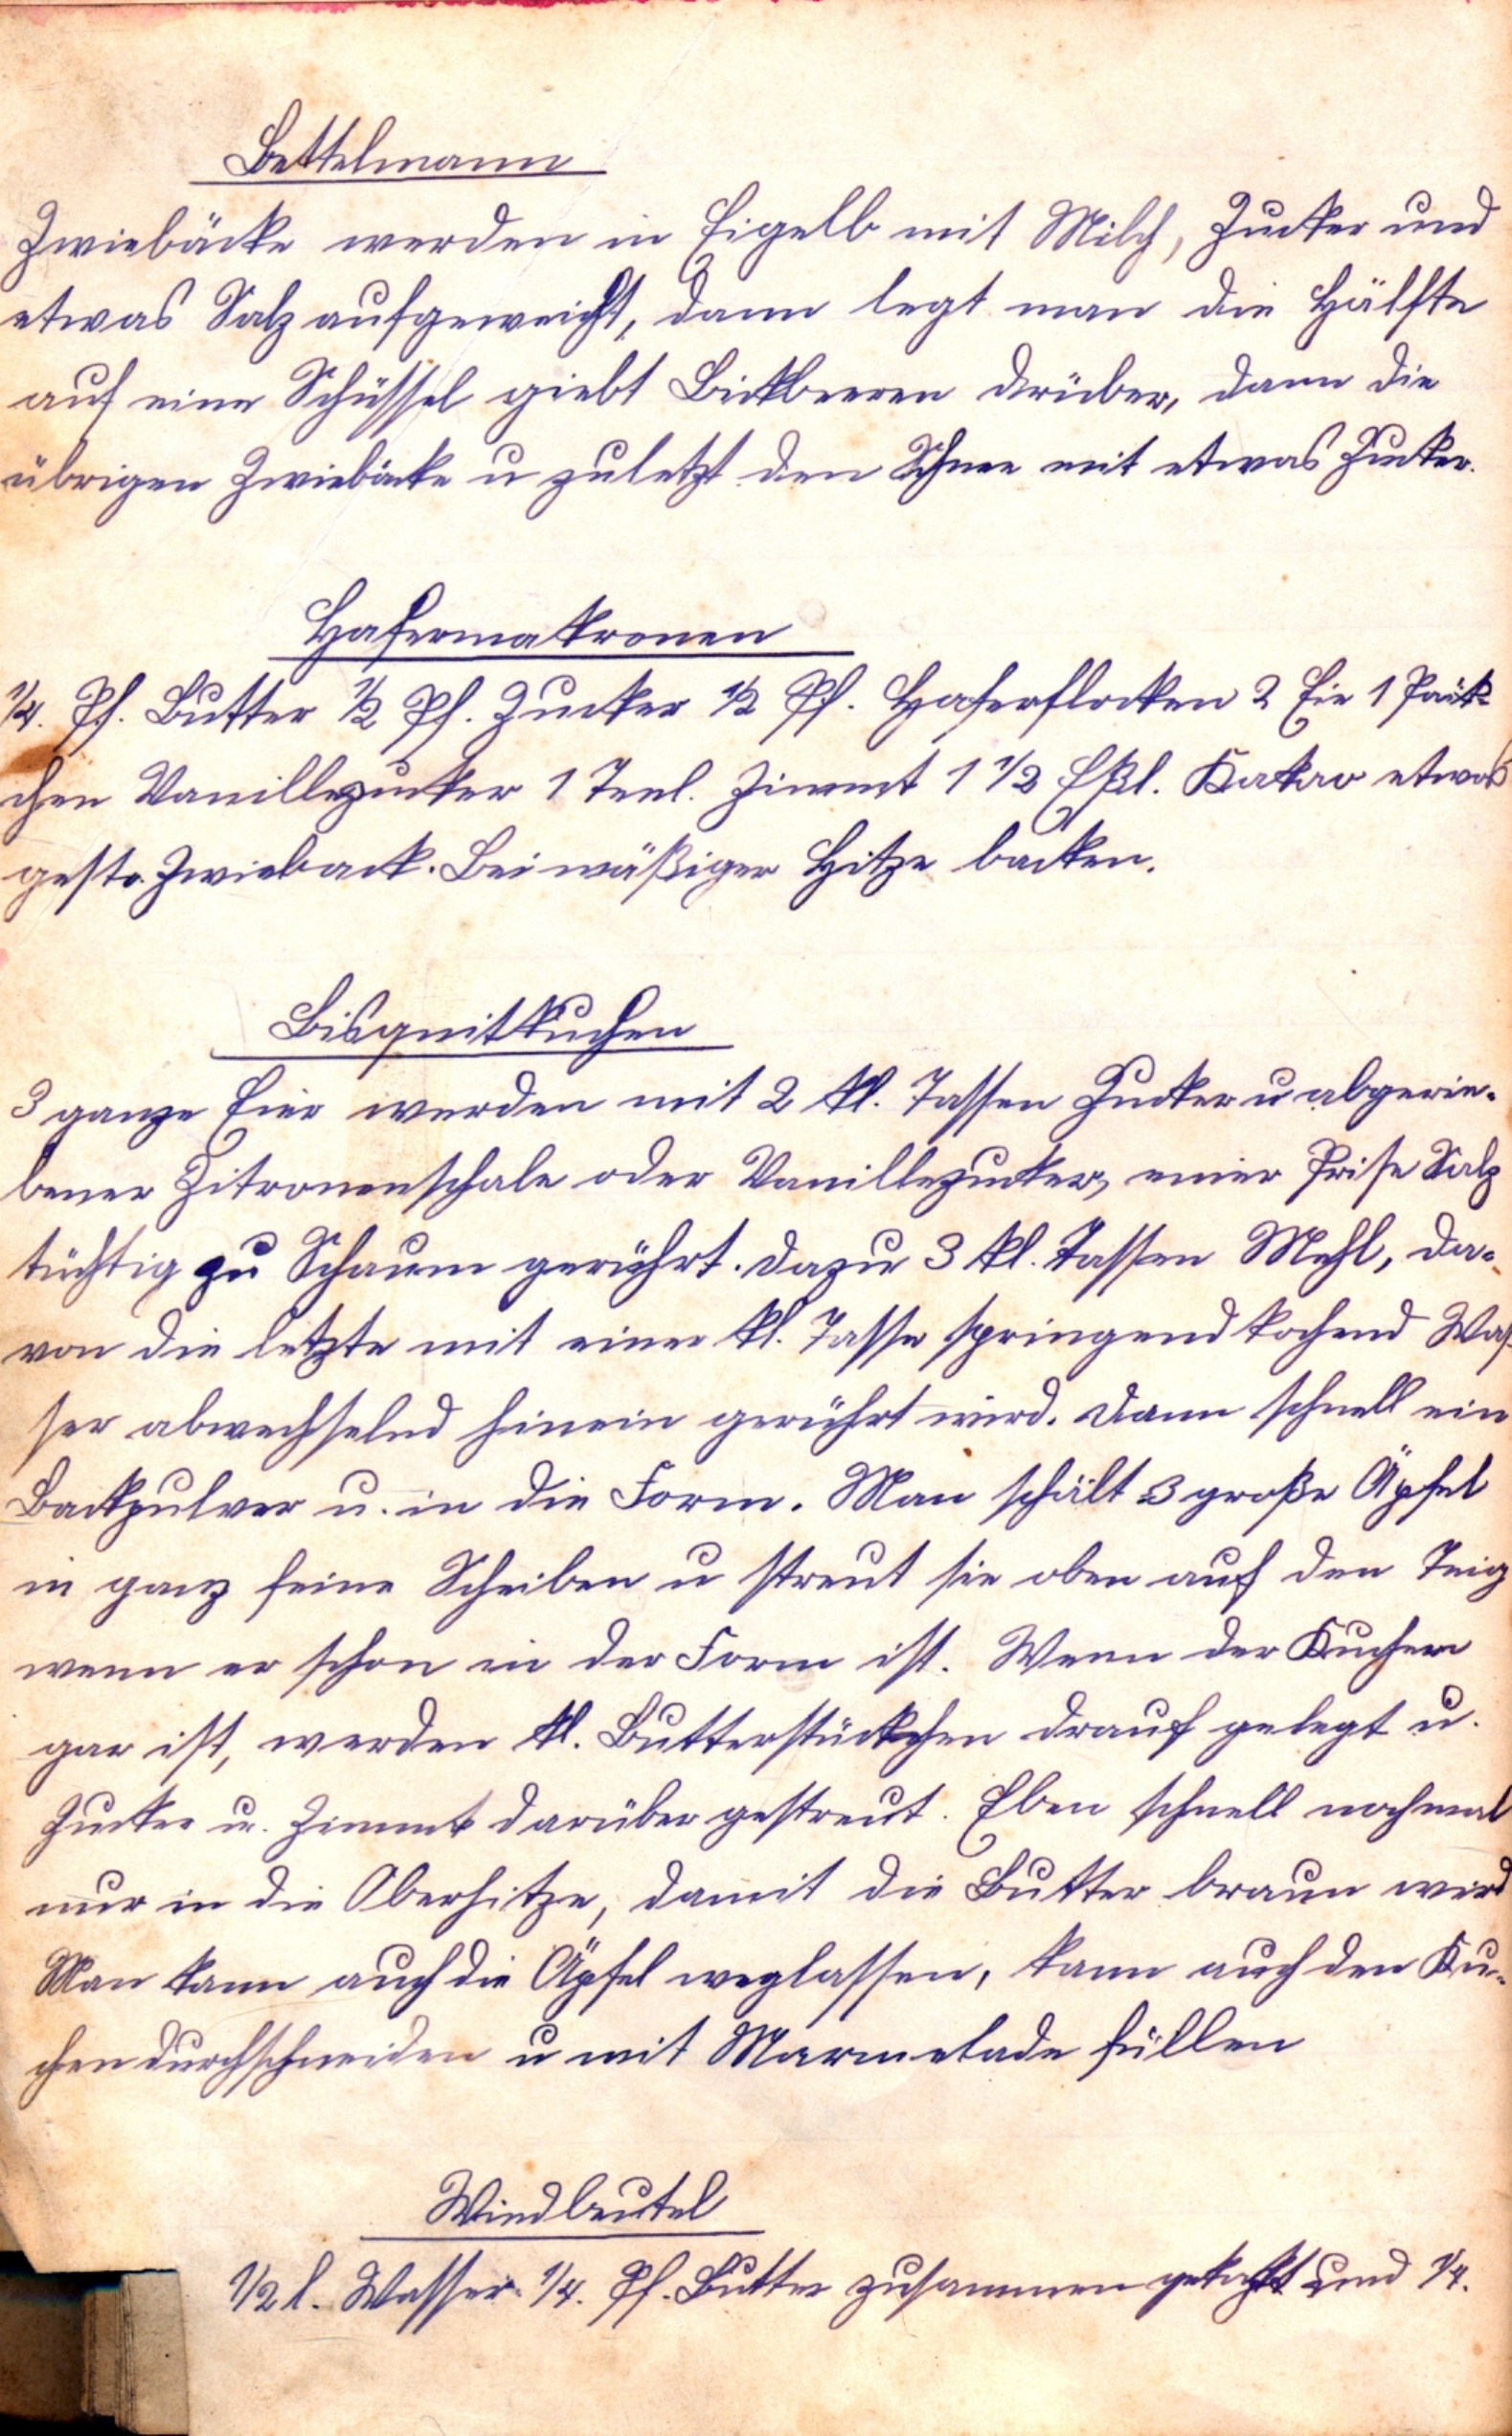 Bettelmann
Zwiebäcke werden in Eigelb mit Milch, Zucker und
etwas Salz aufgeweicht, dann legt man die Hälfte
auf eine Schüssel giebt Bickbeeren drüber, dann die
übrigen Zwiebäcke u zuletzt den Schnee mit etwas Zucker.
Hafermakronen
1/4. Pf. Butter 1/2 Pf. Zucker 1/2 Pf. Haferflocken 2 Eier 1 Päck-
chen Vanillezucker 1 Teel. Zimmt 1 1/2 Eßl. Kakao etwas
gesto. Zwieback. Bei mäßiger Hitze backen.
Bisquitkuchen
3 ganze Eier werden mit 2 kl. Tassen Zucker u abgerie-
bener Zitronenschale oder Vanillezucker, einer Prise Salz
tüchtig zu Schaum gerührt. Dazu 3 kl. Tassen Mehl, da-
von die letzte mit einer kl. Tasse springend kochend Was-
ser abwechselnd hinein gerührt wird. Dann schnell ein
Backpulver u. in die Form. Man schält 3 große Äpfel
in ganz feine Scheiben u streut sie oben auf den Teig
wenn er schon in der Form ist. Wenn der Kuchen
gar ist, werden kl. Butterstückchen drauf gelegt u.
Zucker u. Zimmt darüber gestreut. Eben schnell nochmal
nur in die Oberhitze, damit die Butter braun wird
Man kann auch die Äpfel weglassen, kann auch den Ku-
chen durchschneiden u mit Marmelade füllen
Windbeutel
1/2 l. Wasser 1/4. Pf. Butter zusammen gekocht und 1/4.